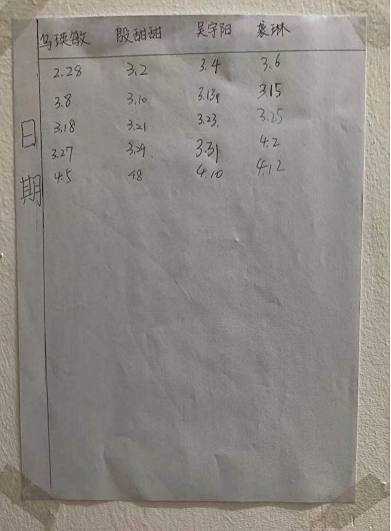 乌瑛敏 殷甜甜 吴宇阳 袁琳
2.28 3.2 3.4 3.6
3.8 3.10 3.13 3.15
3.18 3.21 3.23 3.25
3.27 3.29 3.31 4.2
4.5 4.8 4.10 4.12
日期